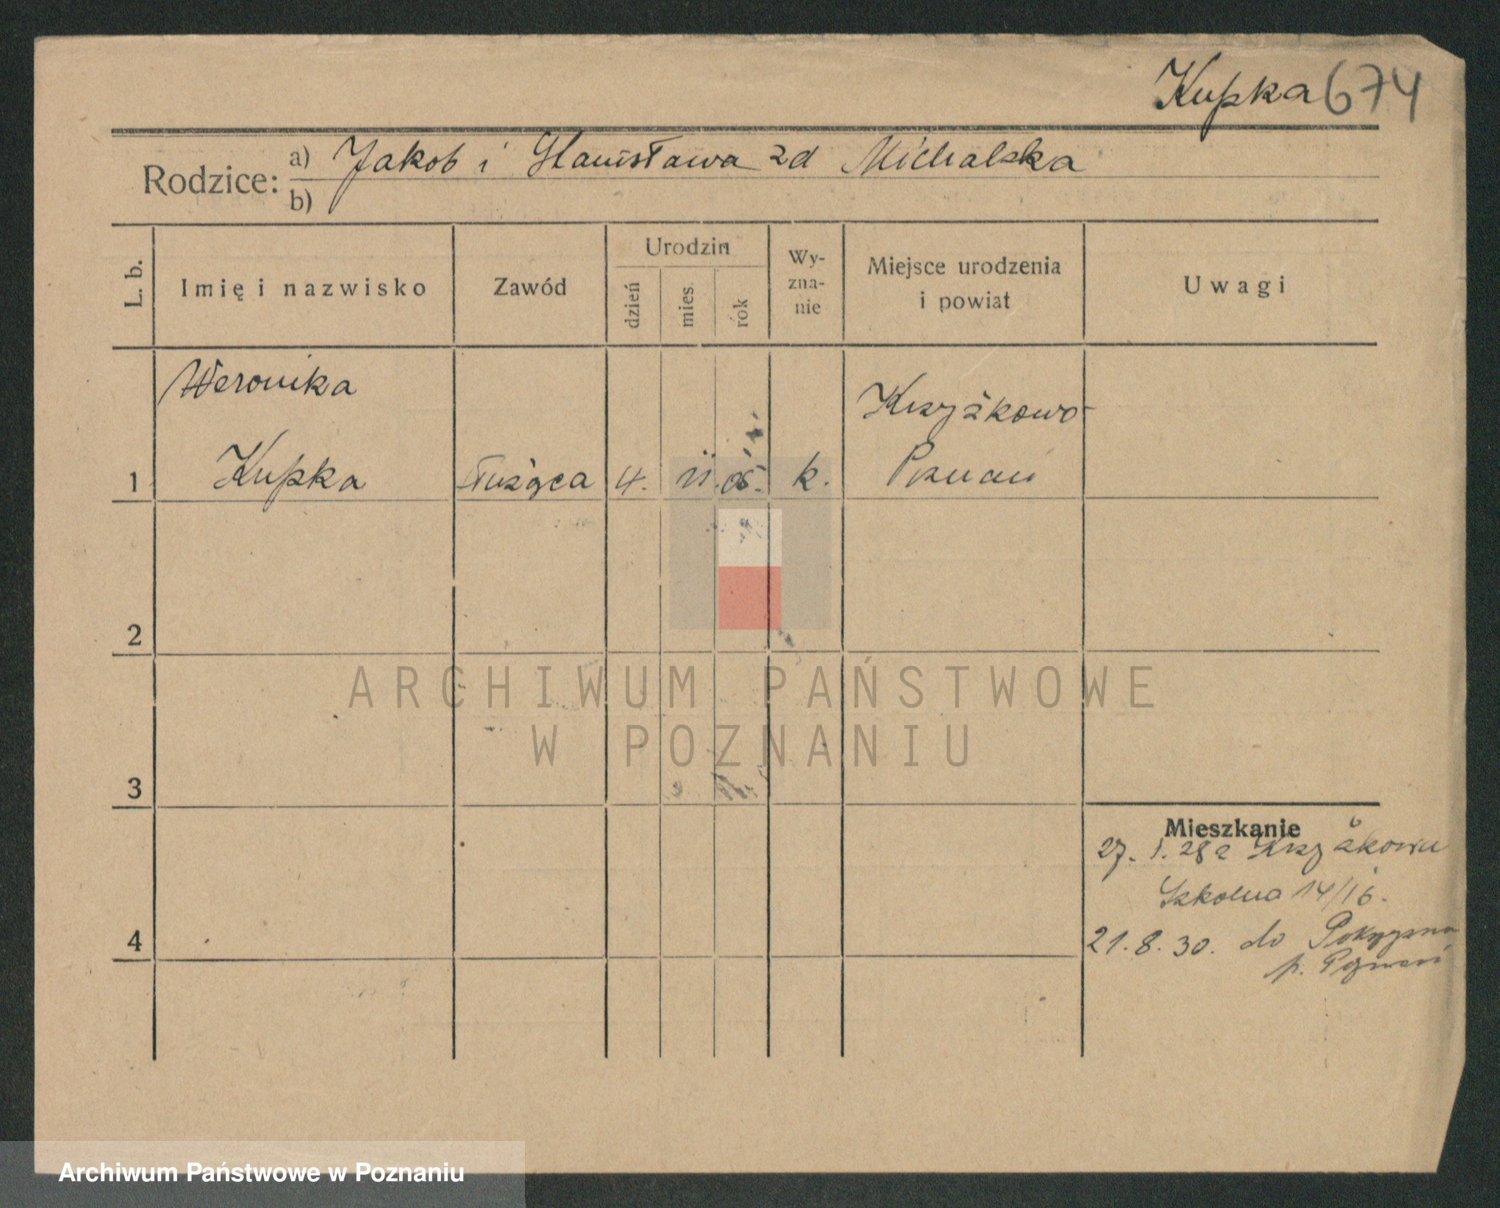 Kupka 674
Rodzice: a) Jakob i Stanisława zd Michalska
b)
L. b.
Imię i nazwisko
Zawód
Urodzin
dzień
mies.
rok
Wy-
zna-
nie
Miejsce urodzenia
i powiat
Uwagi
Weronika
Krzyżkowo
1 Kupka służąca 4. 11. k. Poznań
2
ARCHIWUM PAŃSTWOWE
W POZNANIU
3
Mieszkanie
27. 1. 28 z Krzyżkowa
Szkolna 14/16.
4
21. 8. 30. do
p. Poznań
Archiwum Państwowe w Poznaniu